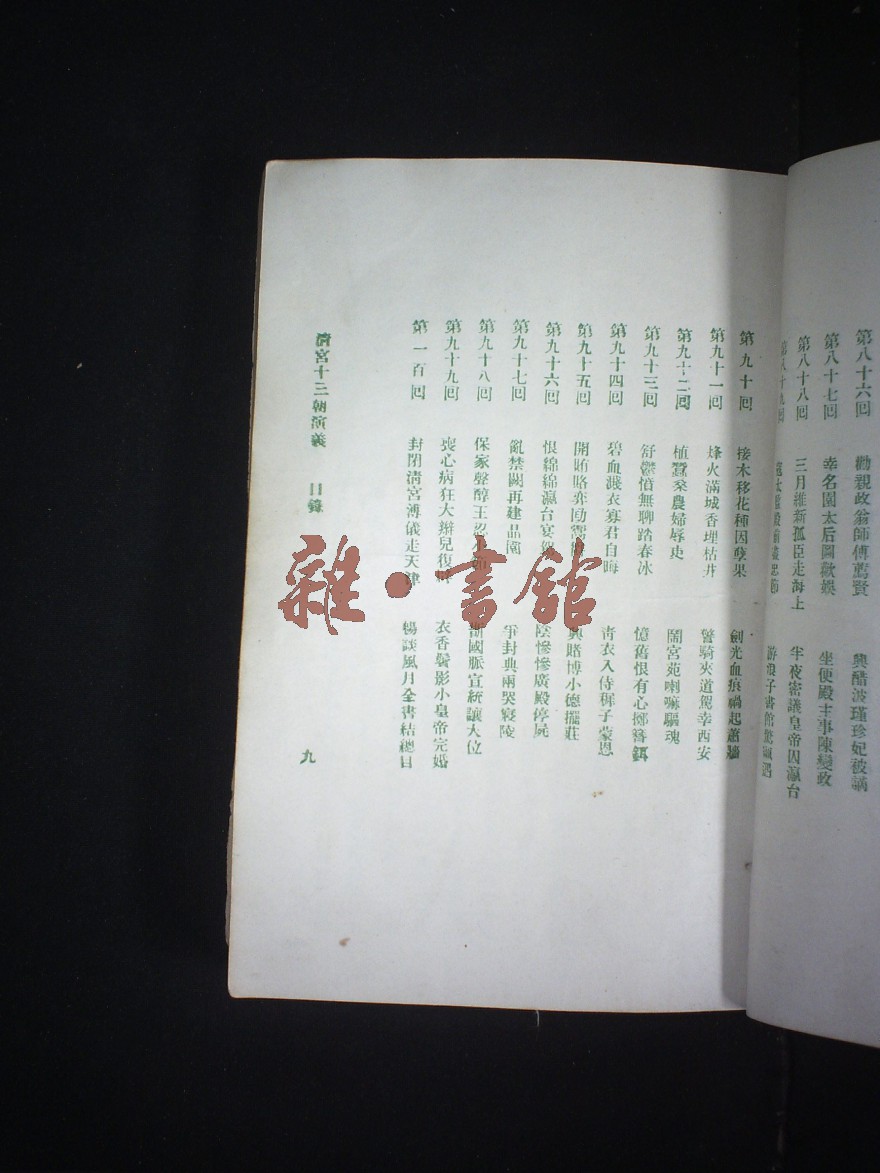 第八十六回 勸親政翁師傅薦賢 興酷波瑾珍妃被謫
第八十七回 幸名園太后圖歡娛 坐便殿主事陳變政
第八十八回 三月維新孤臣走海上 半夜密議皇帝囚瀛台
第八十九回 寇太監殿前盡忠節 游浪子書館驚颿遇
第九十回 接木移花種因孽果 劍光血痕禍起蕭牆
第九十一回 烽火滿城香埋枯井 警騎夾道駕幸西安
第九十二回 植蠶桑農婦辱吏 鬧宮苑喇嘛驅魂
第九十三回 舒鬱憤無聊踏春冰 憶舊恨有心擲簪鉺
第九十四回 碧血濺衣寡君自晦 青衣入侍稚子蒙恩
第九十五回 開賄賂奕劻 興賭博小德擺莊
第九十六回 恨綿綿瀛台宴駕 陰慘慘廣殿停屍
第九十七回 亂禁闕再建品園 爭封典兩哭寢陵
第九十八回 保家聲醇王忍 斷國脈宣統讓大位
第九十九回 喪心病狂大辮兒復辟 衣香鬢影小皇帝完婚
第一百回 封閉清宮溥儀走天津 暢談風月全書結總目
清宮十三朝演義 目錄
九
雜·書館